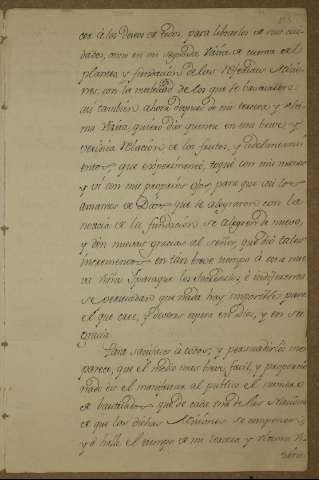 cer á los deseos de todos, para librarlos de sus cui-
dados, como en mi segunda Visita di cuenta del
plantel, y fundacion de las Misio-
nes con la multitud de los que se bautizaban:
asi tambien ahora despues de mi tercera, y ulti-
ma Visita, quiero dar quenta en una breve, y
veridica Relacion de los frutos, y adelantami-
entos, que experimenté, toqué con mis manos
y vi con mis propios ojos para que asi los
amantes de Dios que se alegraron con la
noticia de la fundacion se alegren de nuevo,
y den nuevas gracias al señor, que dió tales
incrementos en tan breve tiempo á esta nue
va Viña; y para que los
se persuadan que nada hay imposible para
el que cree, y deveras espera en Dios, y en su
gracia.
Para satisfacer á todos, y persuadirlos me
parece, que el medio mas breve, facil, y proporcio
nado es el manifestar al publico el numero
de bautizados, que de cada una de las Naciones
de que las dichas Misiones se componen,
yo hallé el tiempo de mi tercera y ultima Vi
sita